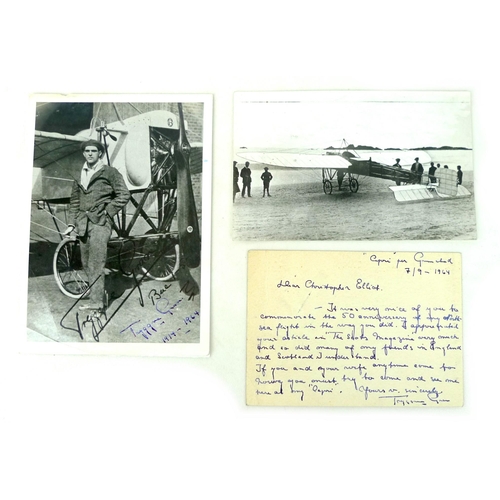 Tryggve Gran
1914 - 1964
"Capri" per Grimstad
7/9 - 1964
Dear Christopher Elliott.
It was very nice of you to
commemorate the 50 anniversary of my North
sea flight in the way you did. I appreciated
your article in The Scots Magazine very much
and so did many of my friends in England
and Scotland I understand.
If you and your wife anytime come to
Norway you must try to come and see me
here at my "Capri". Yours v. sincerely
Tryggve Gran